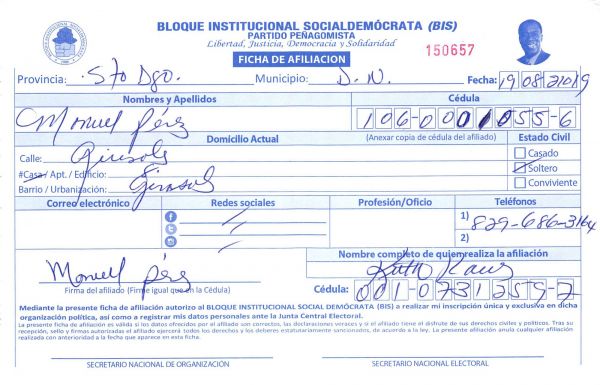 BLOQUE INSTITUCIONAL SOCIALDEMÓCRATA (BIS)
PARTIDO PEÑAGOMISTA
Libertad, Justicia, Democracia y Solidaridad
150657
FICHA DE AFILIACION
Provincia: Sto Dgo. Municipio: D.N. Fecha: 19/08/2019
Nombres y Apellidos Cédula
Manuel Pérez 106-0001055-6
Domicilio Actual (Anexar copia de cédula del afiliado) Estado Civil
Calle: Girasol
Casado
#Casa / Apt. / Edificio:
Soltero
Barrio / Urbanización: Girasol
Conviviente
Correo electrónico Redes sociales Profesión/Oficio Teléfonos
1) 829-686-3164
2)
Nombre completo de quien realiza la afiliación
Manuel Pérez
Firma del afiliado (Firme igual que en la Cédula)
Cédula: 001-0731259-7
Mediante la presente ficha de afiliación autorizo al BLOQUE INSTITUCIONAL SOCIAL DEMÓCRATA (BIS) a realizar mi inscripción única y exclusiva en dicha
organización política, así como a registrar mis datos personales ante la Junta Central Electoral.
La presente ficha de afiliación es válida si los datos ofrecidos por el afiliado son correctos, las declaraciones veraces y si el afiliado tiene el disfrute de sus derechos civiles y políticos. Tras su
recepción, sello y firmas autorizadas el afiliado ejercerá todos los derechos y los deberes estatuariamente sancionados, de acuerdo a la ley. La presente afiliación anula cualquier afiliación
realizada con anterioridad a la fecha que aparece en esta ficha.
SECRETARIO NACIONAL DE ORGANIZACIÓN SECRETARIO NACIONAL ELECTORAL